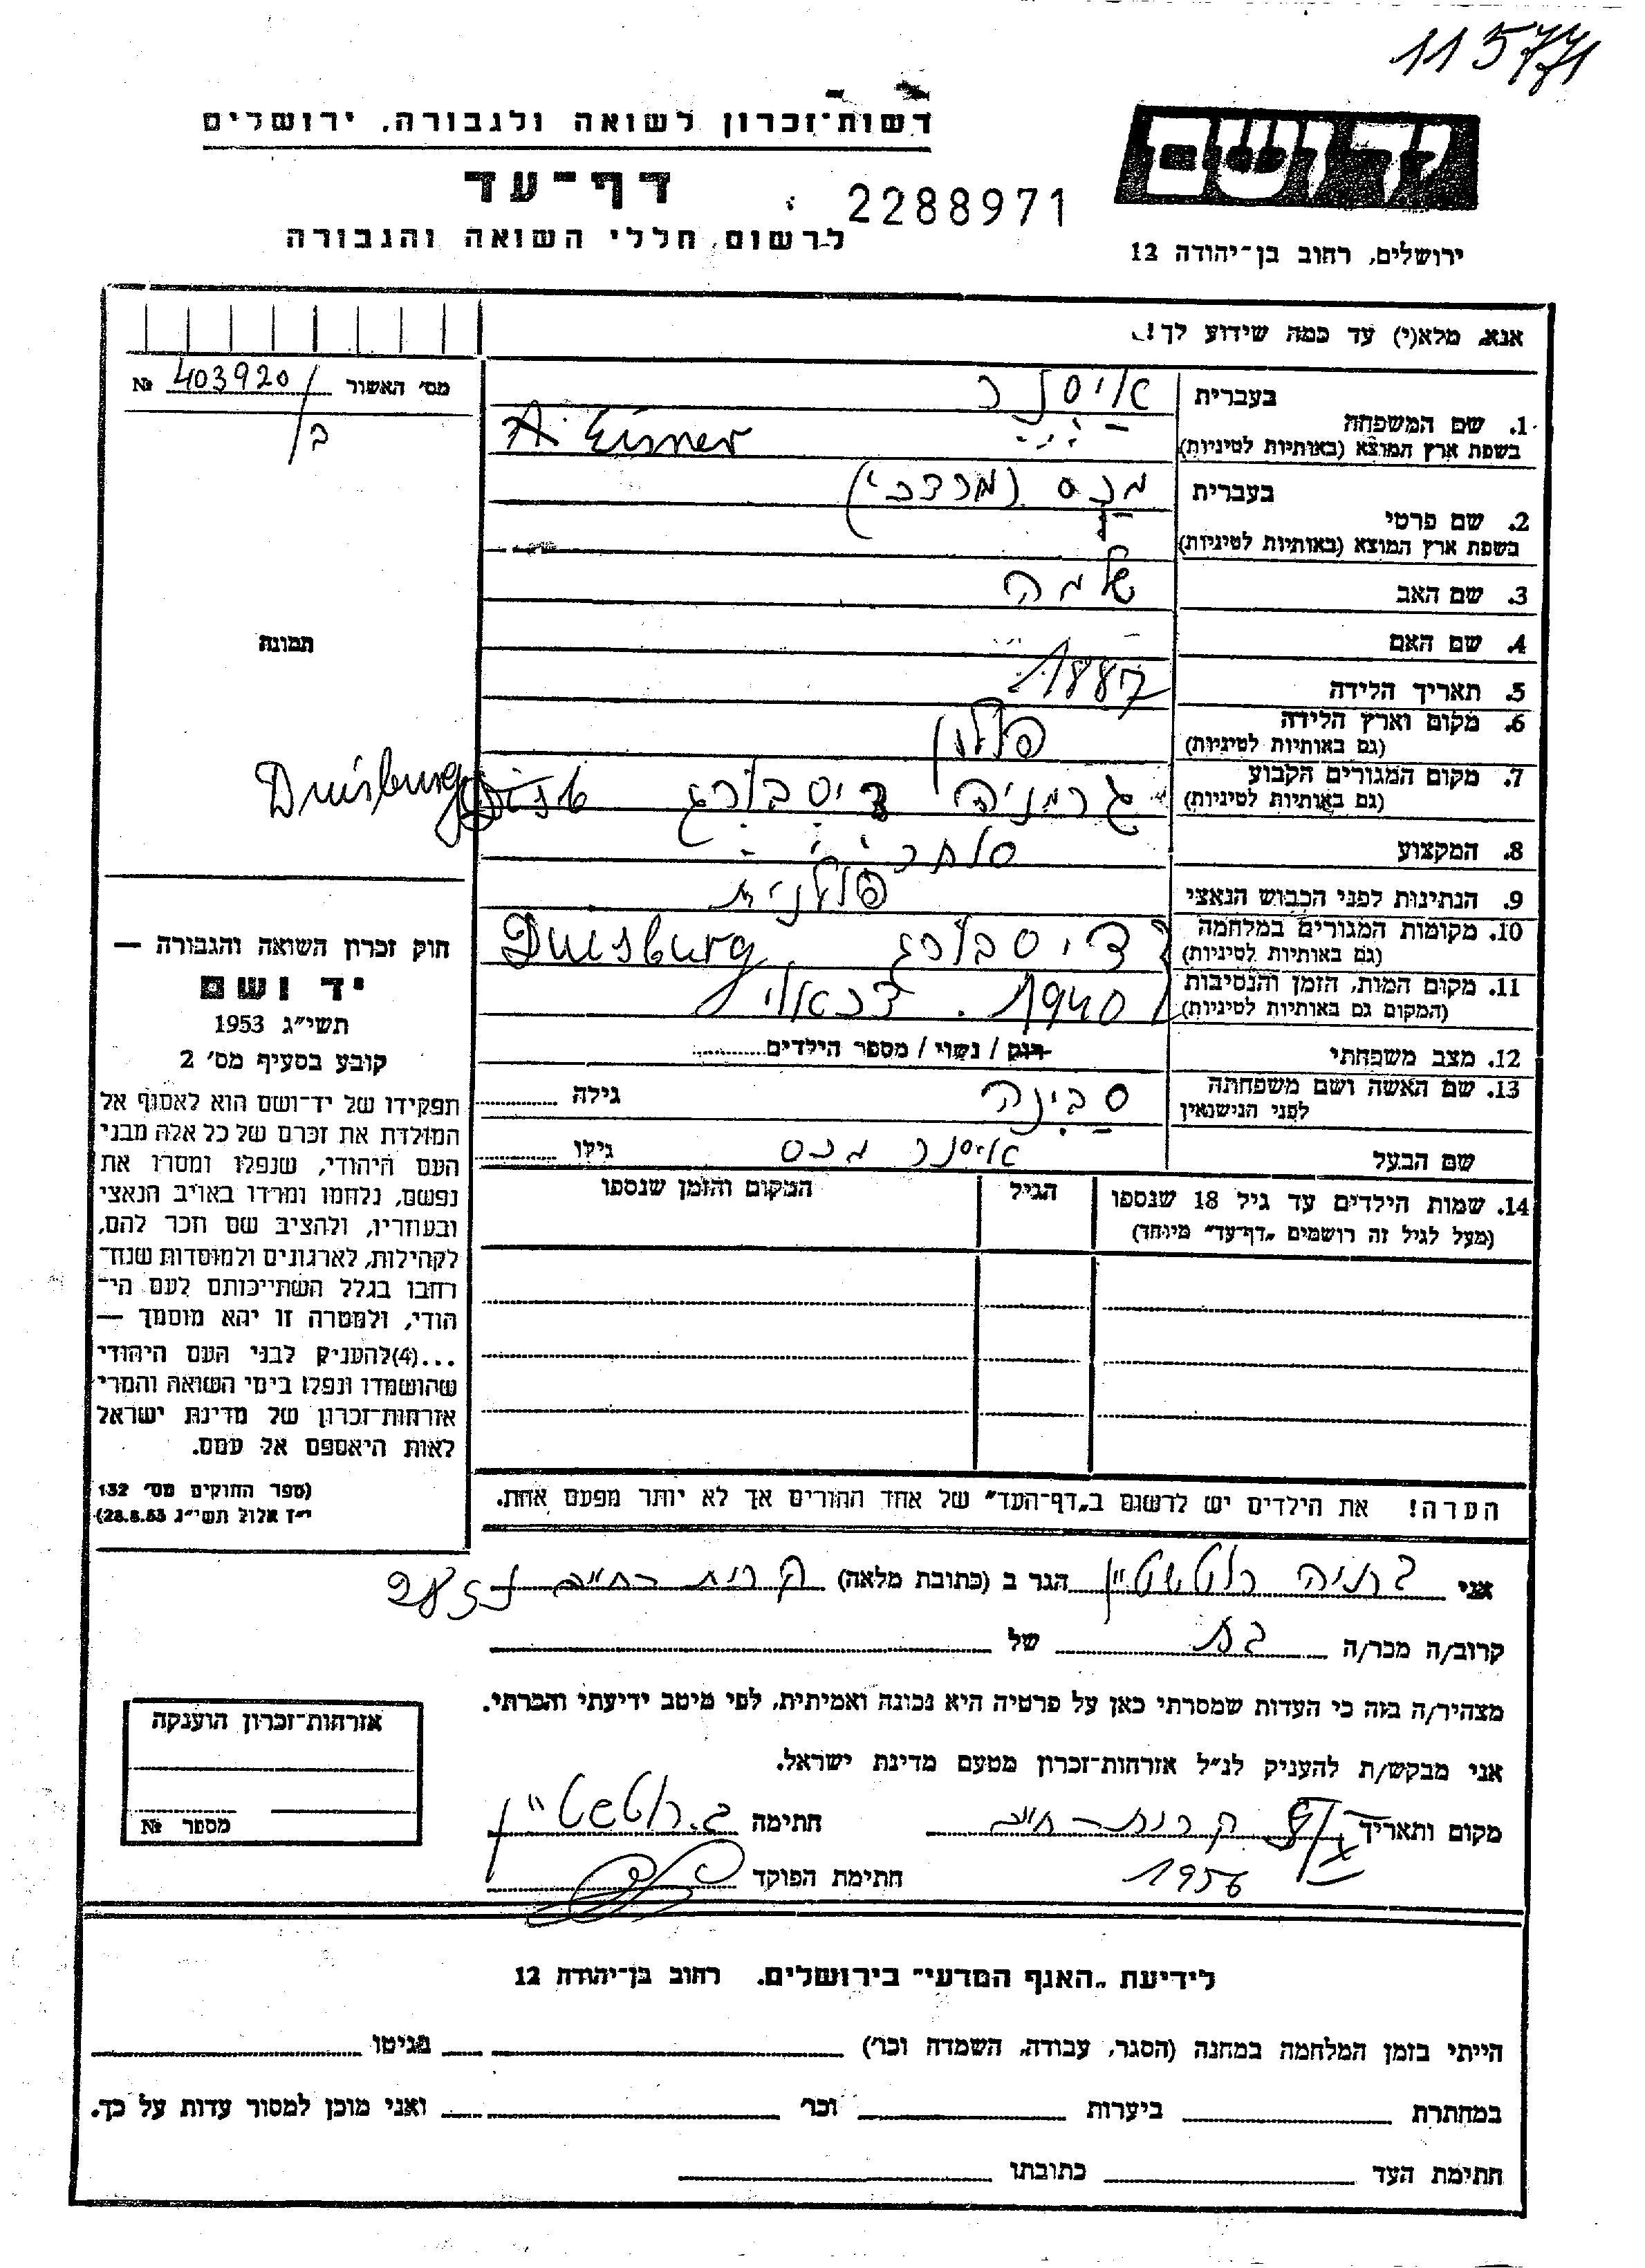 115771
רשות־זכרון לשואה ולגבורה, ירושלים
ידושם
דף־עד
2288971
לרשום חללי השואה והגבורה
ירושלים, רחוב בן־יהודה 12
אנא, מלא(י) עד כמה שידוע לך!
מס׳ האשור 403920 №
ב/
1. שם המשפחה
בעברית אייסנר
בשפת ארץ המוצא (באותיות לטיניות) Eisner
2. שם פרטי
בעברית מכס (מרדכי)
בשפת ארץ המוצא (באותיות לטיניות)
3. שם האב שלמה
4. שם האם
תמונה
5. תאריך הלידה 1887
6. מקום וארץ הלידה פולין
(גם באותיות לטיניות)
7. מקום המגורים הקבוע גרמניה דיסבורג
(גם באותיות לטיניות) Duisburg
8. המקצוע סוחר
9. הנתינות לפני הכבוש הנאצי פולנית
10. מקומות המגורים במלחמה דיסבורג Duisburg
(גם באותיות לטיניות)
11. מקום המות, הזמן והנסיבות 1940. דכאוי
(המקום גם באותיות לטיניות)
12. מצב משפחתי רוק / נשוי / מספר הילדים
13. שם האשה ושם משפחתה סבינה גילה
לפני הנישואין
שם הבעל אייסנר מכס גילו
14. שמות הילדים עד גיל 18 שנספו הגיל המקום והזמן שנספו
(מעל לגיל זה רושמים „דף־עד״ מיוחד)
חוק זכרון השואה והגבורה —
יד ושם
תשי״ג 1953
קובע בסעיף מס׳ 2
תפקידו של יד־ושם הוא לאסוף אל
המולדת את זכרם של כל אלה מבני
העם היהודי, שנפלו ומסרו את
נפשם, נלחמו ומרדו באויב הנאצי
ובעוזריו, ולהציב שם וזכר להם,
לקהילות, לארגונים ולמוסדות שנח־
רבו בגלל השתייכותם לעם הי־
הודי, ולמטרה זו יהא מוסמך —
...(4)להעניק לבני העם היהודי
שהושמדו ונפלו בימי השואה והמרי
אזרחות־זכרון של מדינת ישראל
לאות היאספם אל עמם.
(ספר החוקים מס׳ 132
י״ז אלול תשי״ג 28.8.53)
הערה! את הילדים יש לרשום ב„דף־העד״ של אחד ההורים אך לא יותר מפעם אחת.
אני ברניה רוטשטיין הגר ב (כתובת מלאה) קרית־חיים
קרוב/ה מכר/ה בת של
מצהיר/ה בזה כי העדות שמסרתי כאן על פרטיה היא נכונה ואמיתית, לפי מיטב ידיעתי והכרתי.
אני מבקש/ת להעניק לנ״ל אזרחות־זכרון מטעם מדינת ישראל.
אזרחות־זכרון הוענקה
מספר №
מקום ותאריך קרית־חיים חתימה ב. רוטשטיין
1956 חתימת הפוקד
לידיעת „האגף המדעי״ בירושלים. רחוב בן־יהודה 12
הייתי בזמן המלחמה במחנה (הסגר, עבודה, השמדה וכר׳) בגיטו
במחתרת ביערות וכר׳ ואני מוכן למסור עדות על כך.
חתימת העד כתובתו